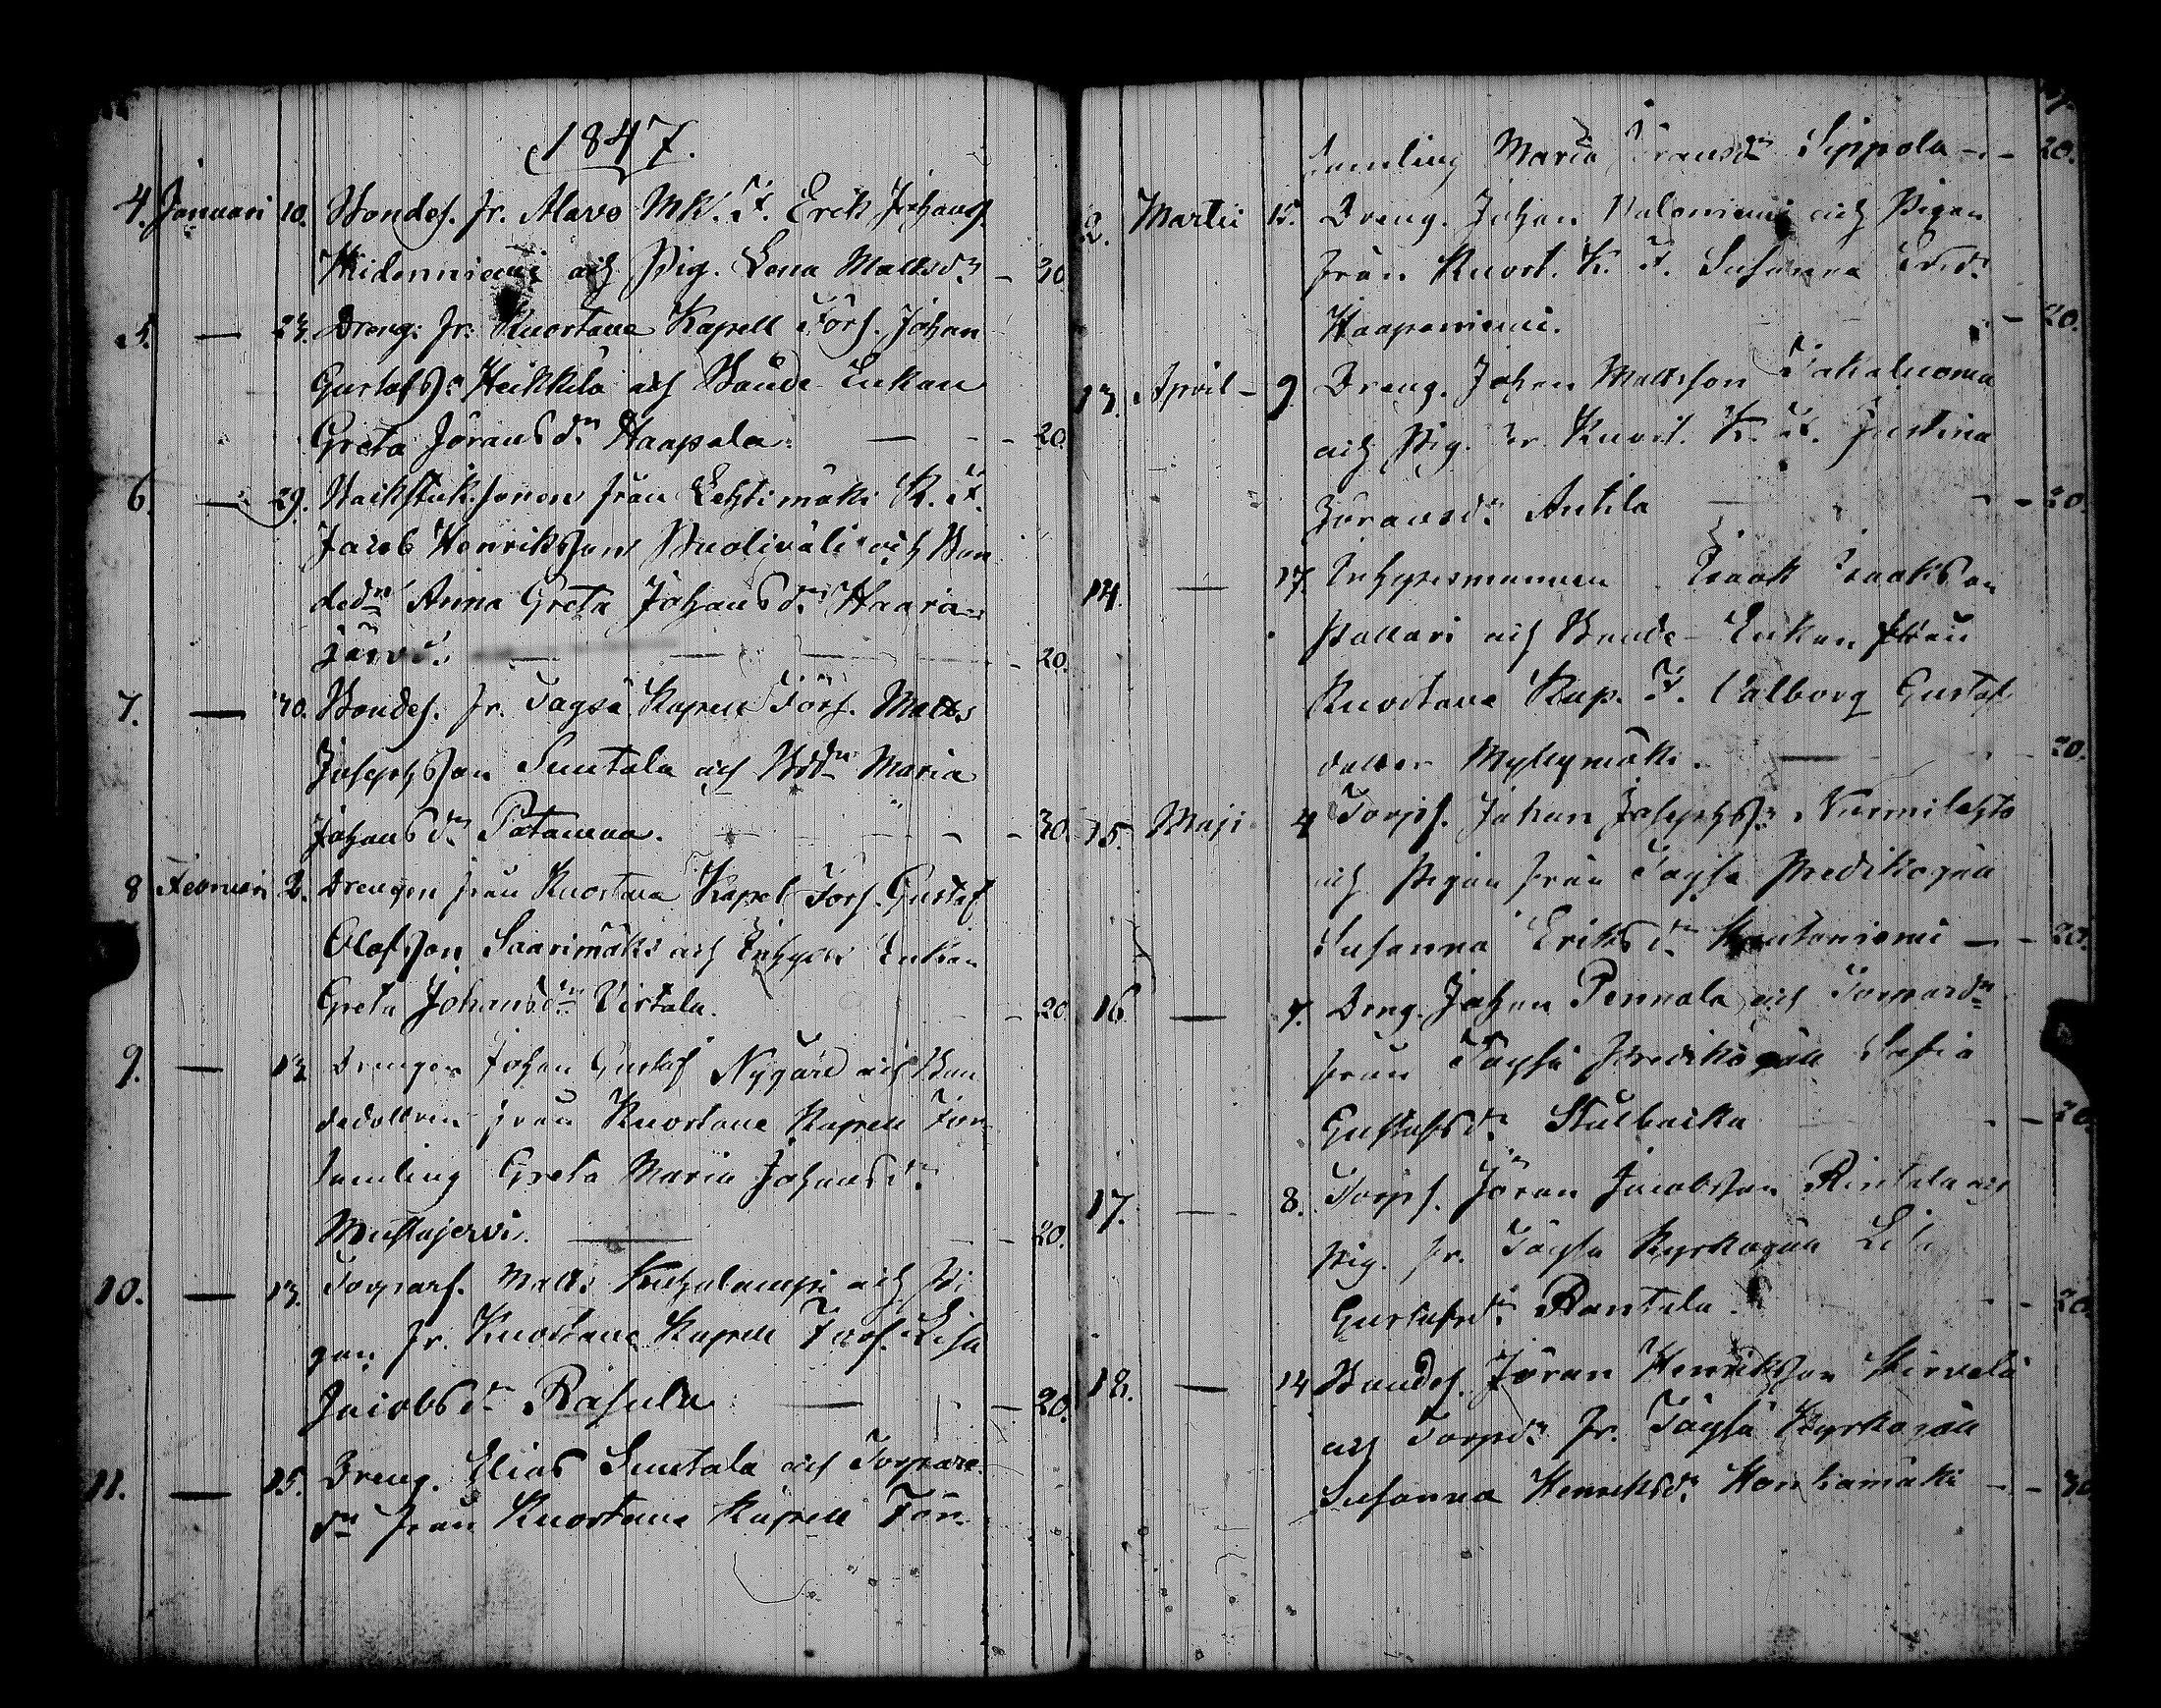 1847.
4. Januari 10. Bondes. fr. Alavo MK. F. Erik Johans.
Hidenniemi och Pig. Lena Mattsdr - 30
5. — 24. Dreng. fr. Kuortane Kapell Förs. Johan
Gustafss: Heikkilä och Bonde Enkan
Greta Jöransdr Haapala. — - - 20.
6. — 29. Backstuk.sonen från Lehtimäki K. F.
Jacob Henriksson Puoliväli och Bon
dedr Anna Greta Johansdr Haara=
järvi. — — — - 20.
7. — 30. Bondes. fr. Töysä Kapell Förs. Matts
Josephsson Suutala och Bddr Maria
Johansdr Patamaa. — - - - 30.
8 Februari 2. Drengen från Kuortane Kapel Förs. Gustaf
Olofsson Saarimäki och Inhyses Enkan
Greta Johansdr Virtala. - 20
9. — 13 Drengen Johan Gustaf Nygård och Bon
dedottren från Kuortane Kapell För
samling Greta Maria Johansdr
Mustajervi. — - - 20.
10. — 13. Torpars. Matts och Pi
gan fr. Kuortane Kapell Förs. Lisa
Jacobsdr Rasula — - 20.
11. — 15. Dreng. Elias Suutala och Torpare
dr från Kuortane Kapell För-
samling Maria Sippola - - 20.
12. Martii 15. Dreng. Johan Valoniemi och Pigan
från Kuort. K. F. Susanna Ersdr
Haapaniemi. - 20.
13. April - 9. Dreng. Johan Mattsson Jakaluoma
och Pig. fr Kuort. K. F. Justina
Jöransdr Antila — - - 20
14. — 17. Inhysesmannen Isaak Isaksson
Pollari och Bonde Enkan från
Kuortane Kap. F. Valborg Gustafs
dotter Myllymäki. — - 20.
15. Maji 4 Torps. Johan Josephss: Nurmilehto
och Pigan från Töysä Predikogäll
Susanna Eriksdr Kontoniemi — - 20.
16 — 7. Dreng. Johan Pennala och Torpardr
från Töysä Predikogäll Sofia
Gustafsdr Kulbacka - - 20.
17. — 8. Torps. Jöran Jacobsson Rintala och
Pig. fr. Töysä Kyrkogäll
Gustafsdr Rantala. - - 20.
18. — 14 Bondes. Jöran Henriksson Kirvelä
och Torpdr fr. Töysä Kyrkogäll
Susanna Henriksdr Konhamäki - - 30